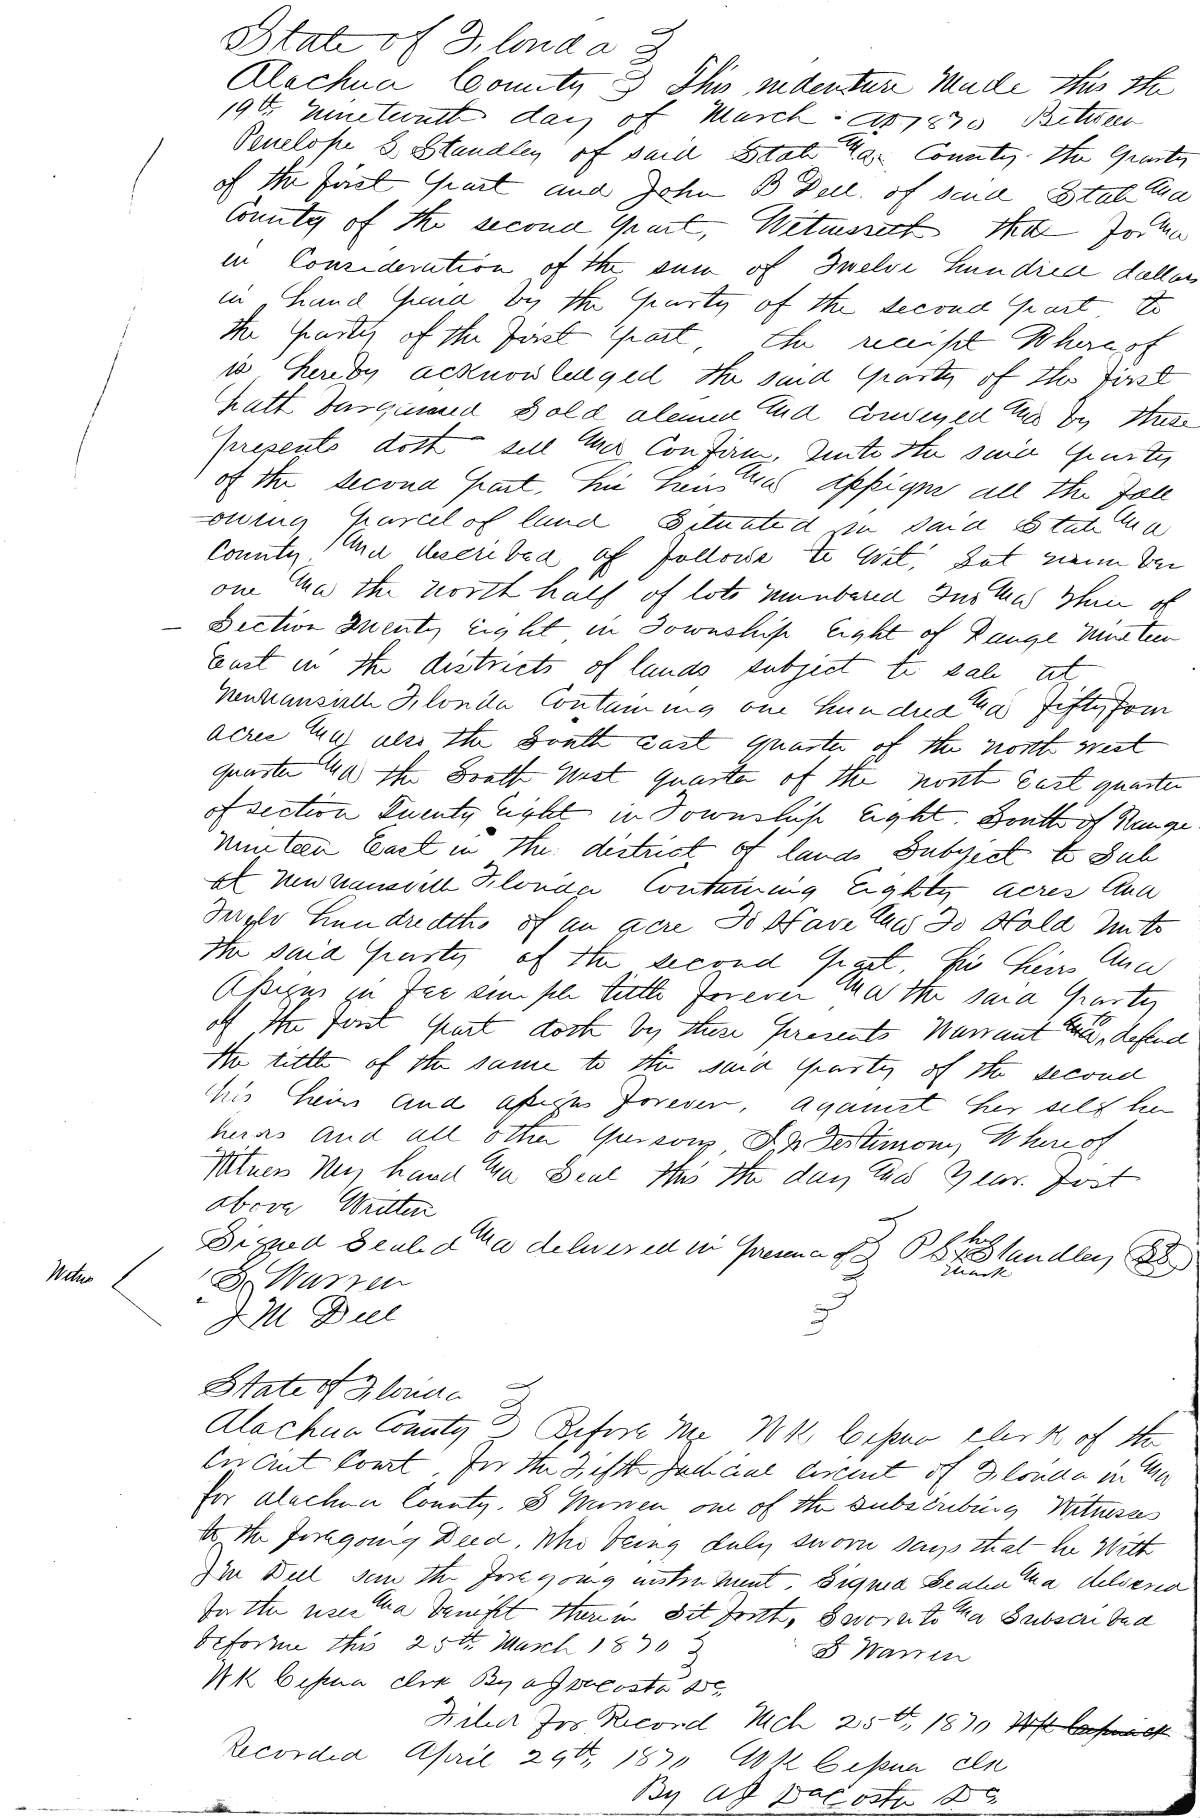 State of Florida
Alachua County This indenture Made this the
19th nineteenth day of March AD 1870 Between
Penelope S Standley of said State and County the party
of the first part and John B Dell of said State and
County of the second part, Witnesseth that for and
in Consideration of the sum of Twelve hundred dollars
in hand paid by the party of the second part to
the party of the first part, the receipt Whereof
is hereby acknowledged the said party of the first
hath bargained Sold aliened and conveyed and by these
presents doth sell and Confirm, unto the said party
of the second part, his heirs and assigns all the foll
owing parcel of land Situated in said State and
County and described as follows to Wit; Lot number
one and the north half of lots numbered Two and Three of
Section Twenty Eight in Township Eight of Range Nineteen
East in the districts of lands subject to sale at
Newnansville Florida Containing one hundred and fifty four
acres and also the South east quarter of the north west
quarter and the South West quarter of the north East quarter
of section Twenty Eight in Township Eight South of Range
Nineteen East in the district of lands Subject to Sale
at Newnansville Florida Containing Eighty acres and
hundredths of an acre To Have and To Hold unto
the said party of the second part, his heirs and
Assigns in fee simple tittle forever and the said party
of the first part doth by these presents Warrant and to defend
the tittle of the same to the said party of the second
his heirs and assigns forever, against her self her
heirs and all other persons, In Testimony Whereof
Witness My hand and Seal this the day and Year first
above Written
Signed Sealed and delivered in presence of P S her Standley SS
mark
Witns S Warren
J M Dell
State of Florida
Alachua County Before Me W K Cessna clerk of the
Circuit Court, for the Fifth Judicial circuit of Florida in and
for Alachua County, S Warren one of the subscribing Witnesses
to the foregoing Deed, Who being duly sworn says that he With
J M Dell saw the foregoing instrument, Signed Sealed and delivered
for the uses and benefit therein Set forth, Sworn to and Subscribed
before me this 25th March 1870 S Warren
W K Cessna clrk By A J Dacosta DC
Filed for Record Mch 25th, 1870 WK Cessna clk
Recorded April 29th, 1870 W K Cessna clk
By A J DaCosta DC